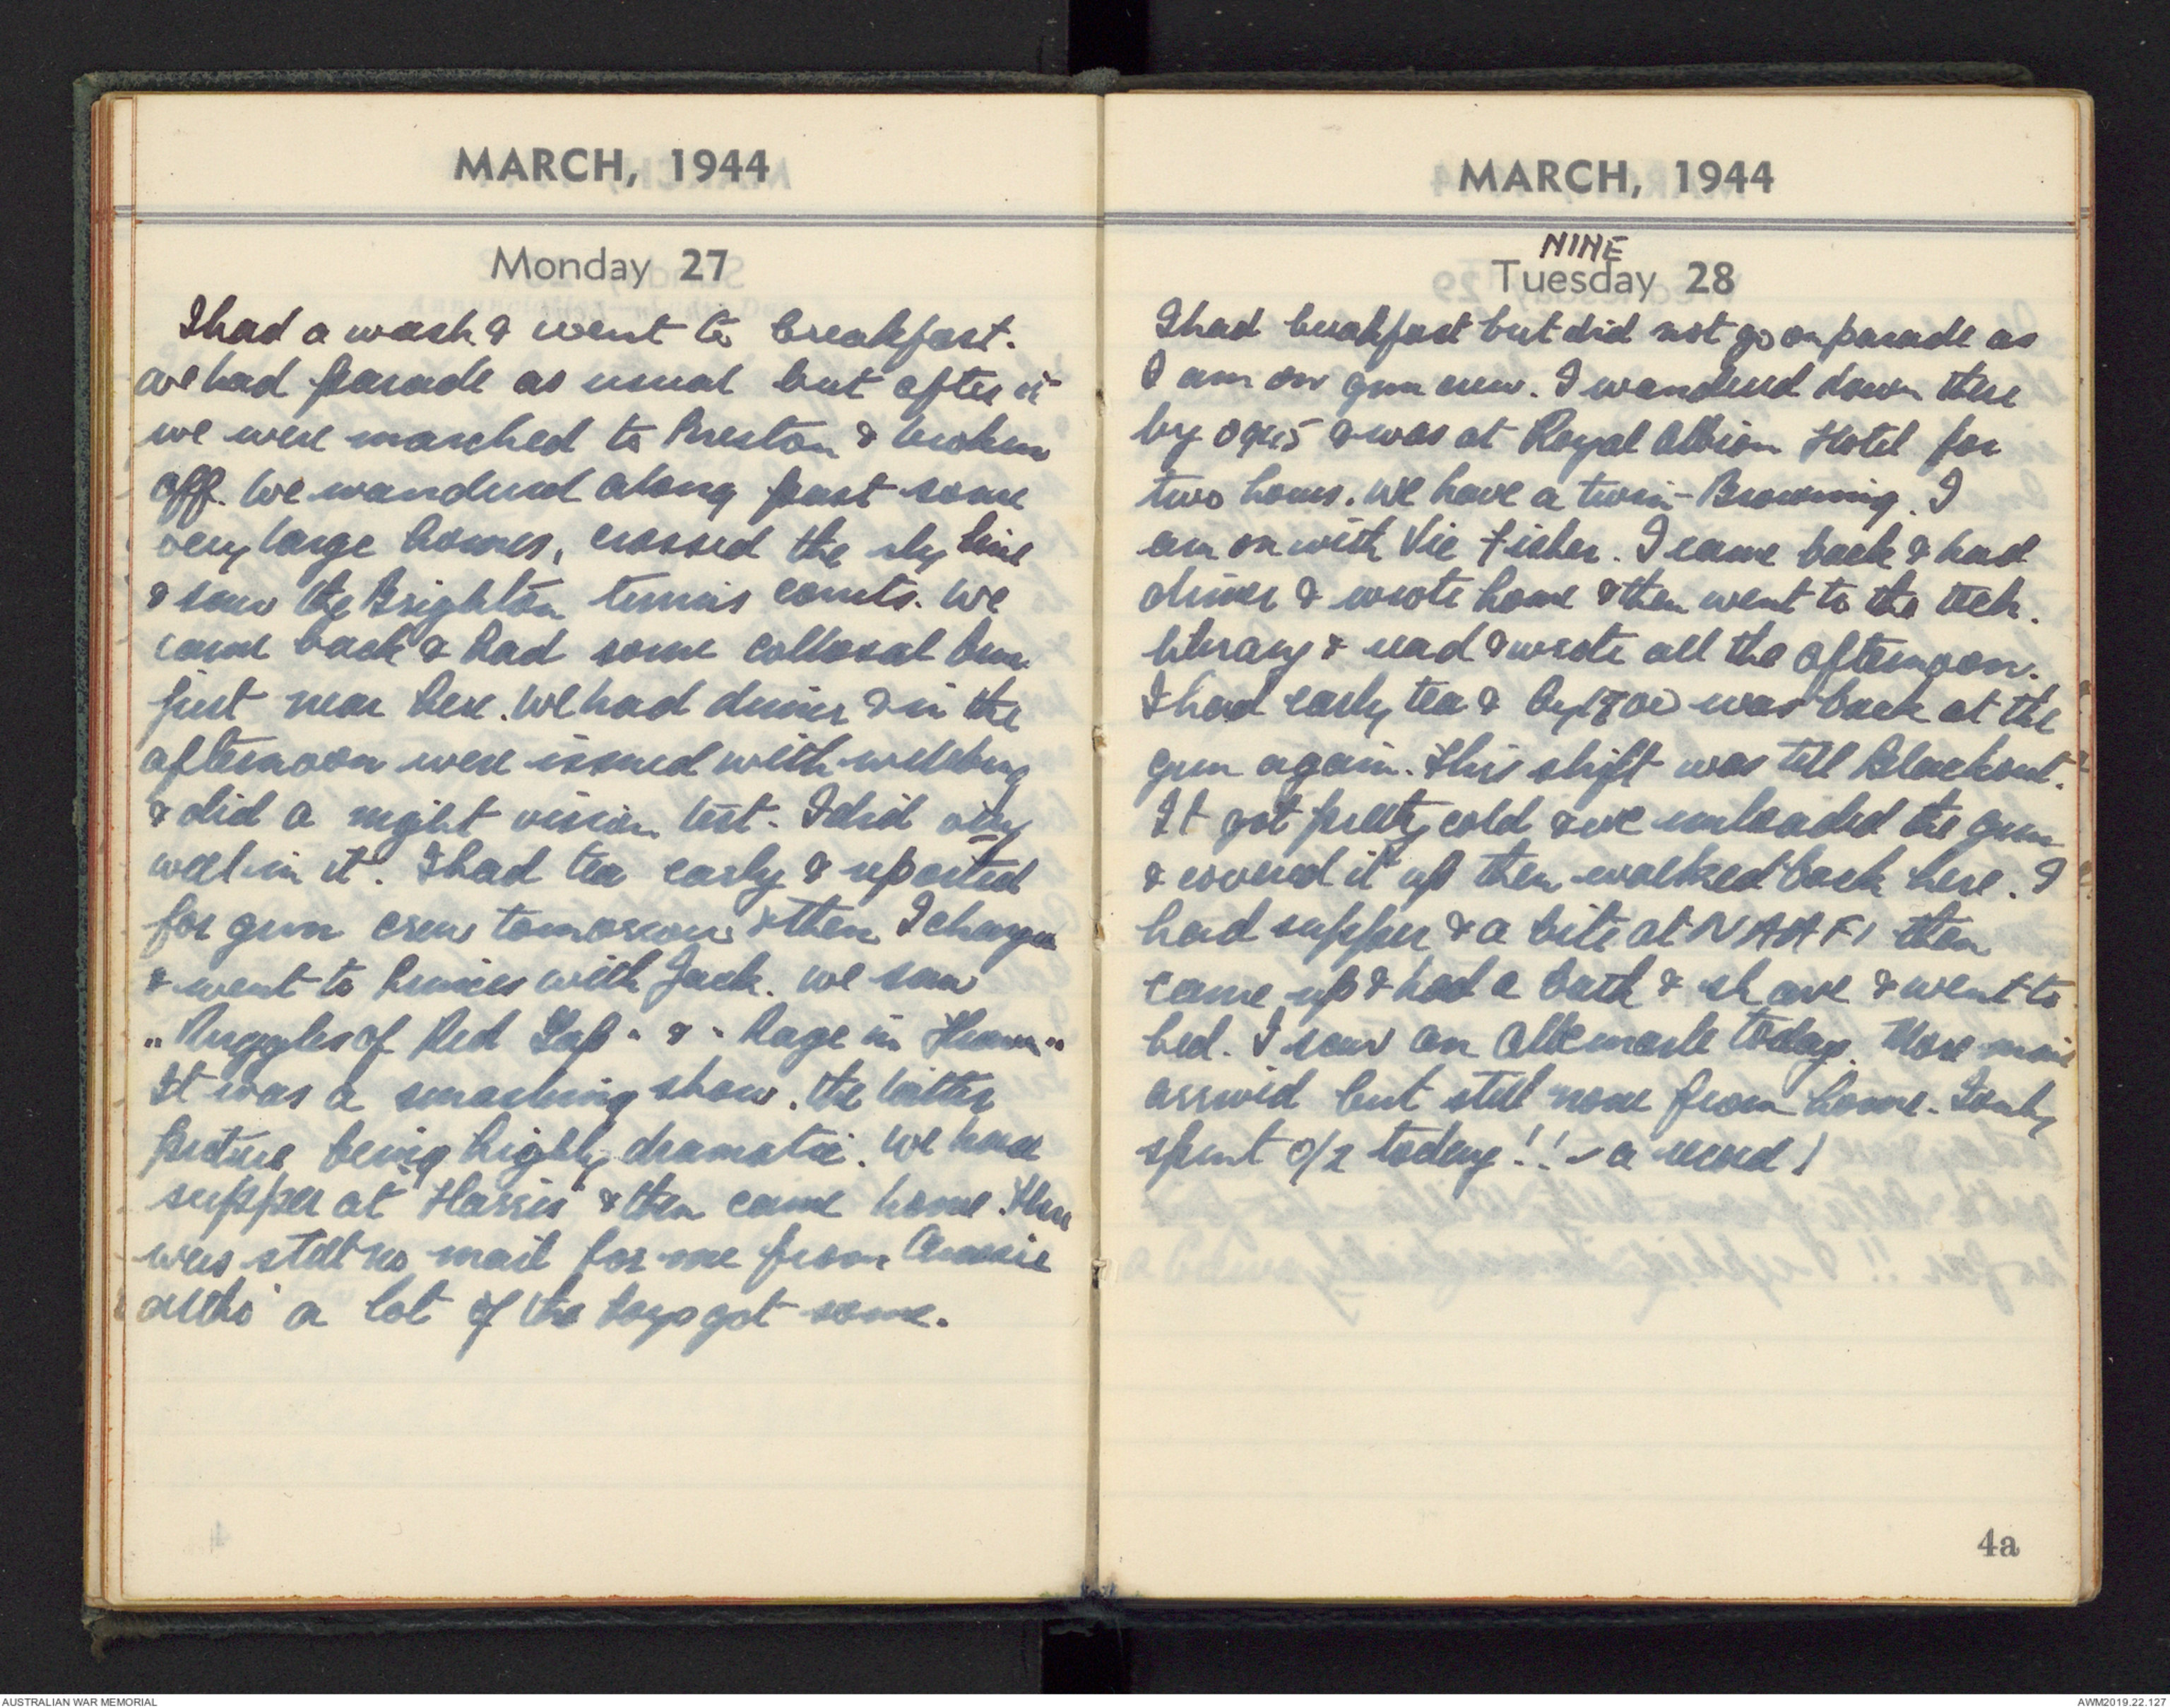 MARCH, 1944
Monday 27
I had a wash & went to breakfast.
We had parade as usual but after it
we were marched to Preston & broken
off. We wandered along past some
very large homes, crossed the rly line
& saw the Brighton tennis courts. We
came back & had some collosal buns
just near here. We had dinner & in the
afternoon were issued with webbing
& did a night vision test. I did very
well in it. I had tea early & reported
for gun crew tomorrow & then I changed
& went to Princes with Jack. We saw
"Ruggles of Red Gap" & "Rage in Heaven"
It was a smashing show, the latter
picture being highly dramatic. We had
supper at Harris' & then came home. There
was still no mail for me from Aussie
altho' a lot of the boys got some.
MARCH, 1944
NINE
Tuesday 28
I had breakfast but did not go on parade as
I am on gun crew. I wandered down there
by 0945 & was at Royal Albion Hotel for
two hours. We have a twin-Browning. I
am on with Vic Fisher. I came back & had
dinner & wrote home & then went to the
library & read & wrote all the afternoon.
I had early tea & by 1700 was back at the
gun again. This shift was till blackout.
It got pretty cold & we unloaded the gun
& covered it up then walked back here. I
had supper & a bite at NAAFI then
came up & had a bath & shave & went to
bed. I saw an Albemarle today. More mail
arrived but still none from home. I only
spent 0/2 today!! - a record!
4a
AUSTRALIAN WAR MEMORIAL
AWM2019.22.127